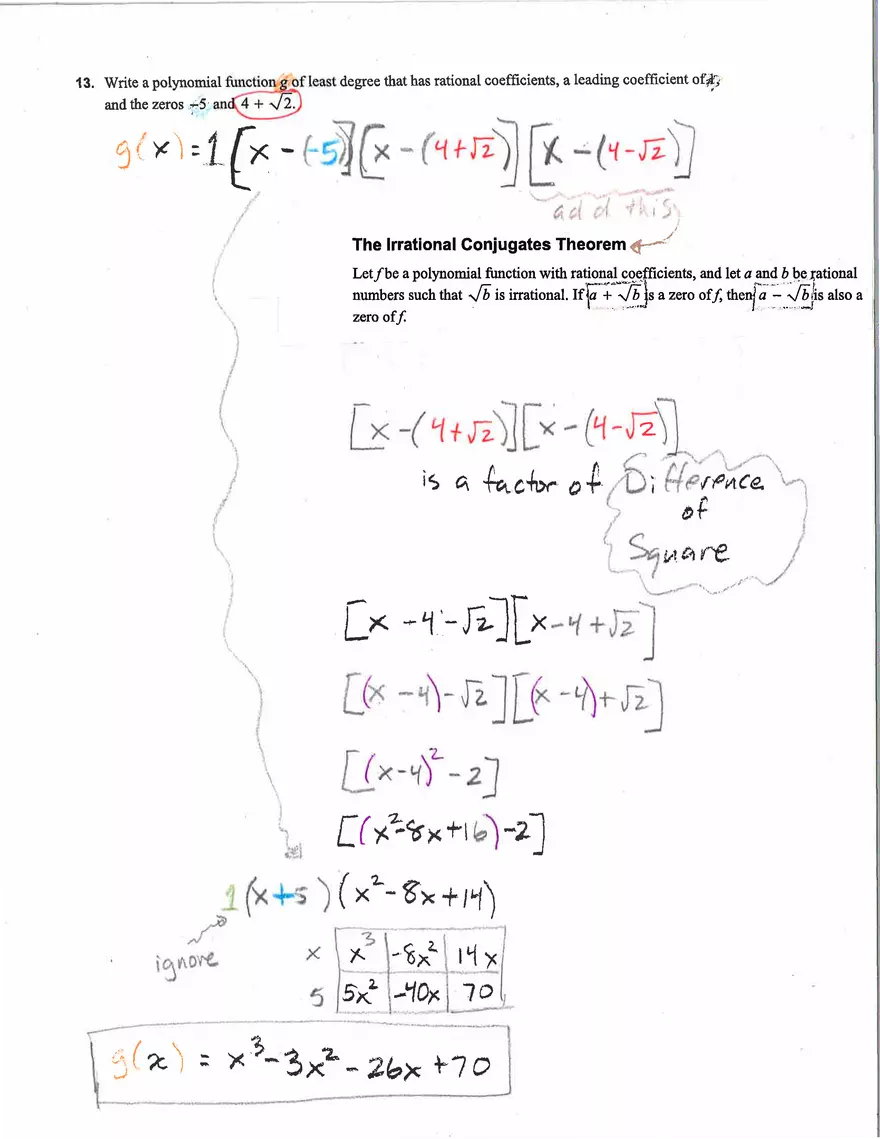 13. Write a polynomial function g of least degree that has rational coefficients, a leading coefficient of 1,
and the zeros −5 and 4 + √2.
g(x) = 1[x - (-5)][x - (4+√2)][x - (4-√2)]
add this
The Irrational Conjugates Theorem
Let f be a polynomial function with rational coefficients, and let a and b be rational
numbers such that √b is irrational. If a + √b is a zero of f, then a − √b is also a
zero of f.
[x - (4+√2)][x - (4-√2)]
is a factor of Difference
of
Square
[x - 4 - √2][x - 4 + √2]
[(x - 4) - √2][(x - 4) + √2]
[(x-4)² - 2]
[(x²-8x+16)-2]
1(x+5)(x²-8x+14)
ignore
x x³ -8x² 14x
5 5x² -40x 70
g(x) = x³ - 3x² - 26x + 70